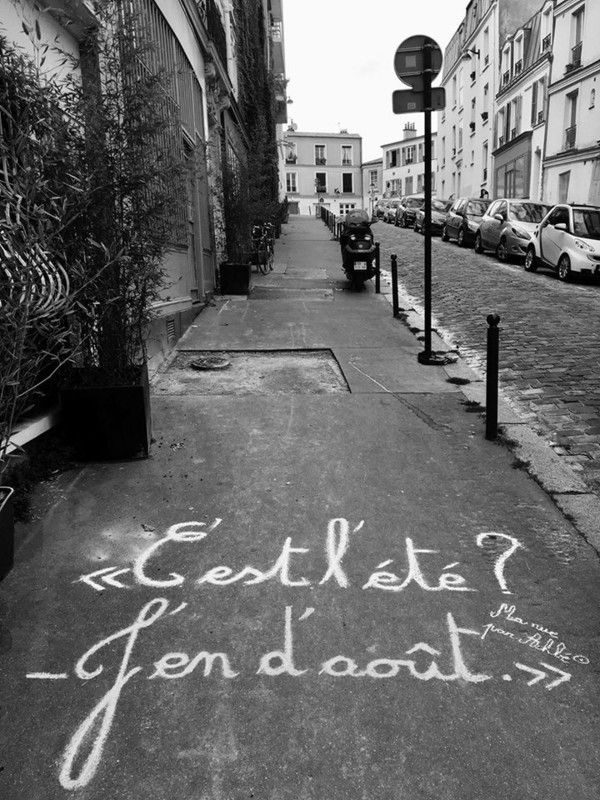 « C'est l'été ?
– J'en d'août. »
Ma rue
par Achbé ©